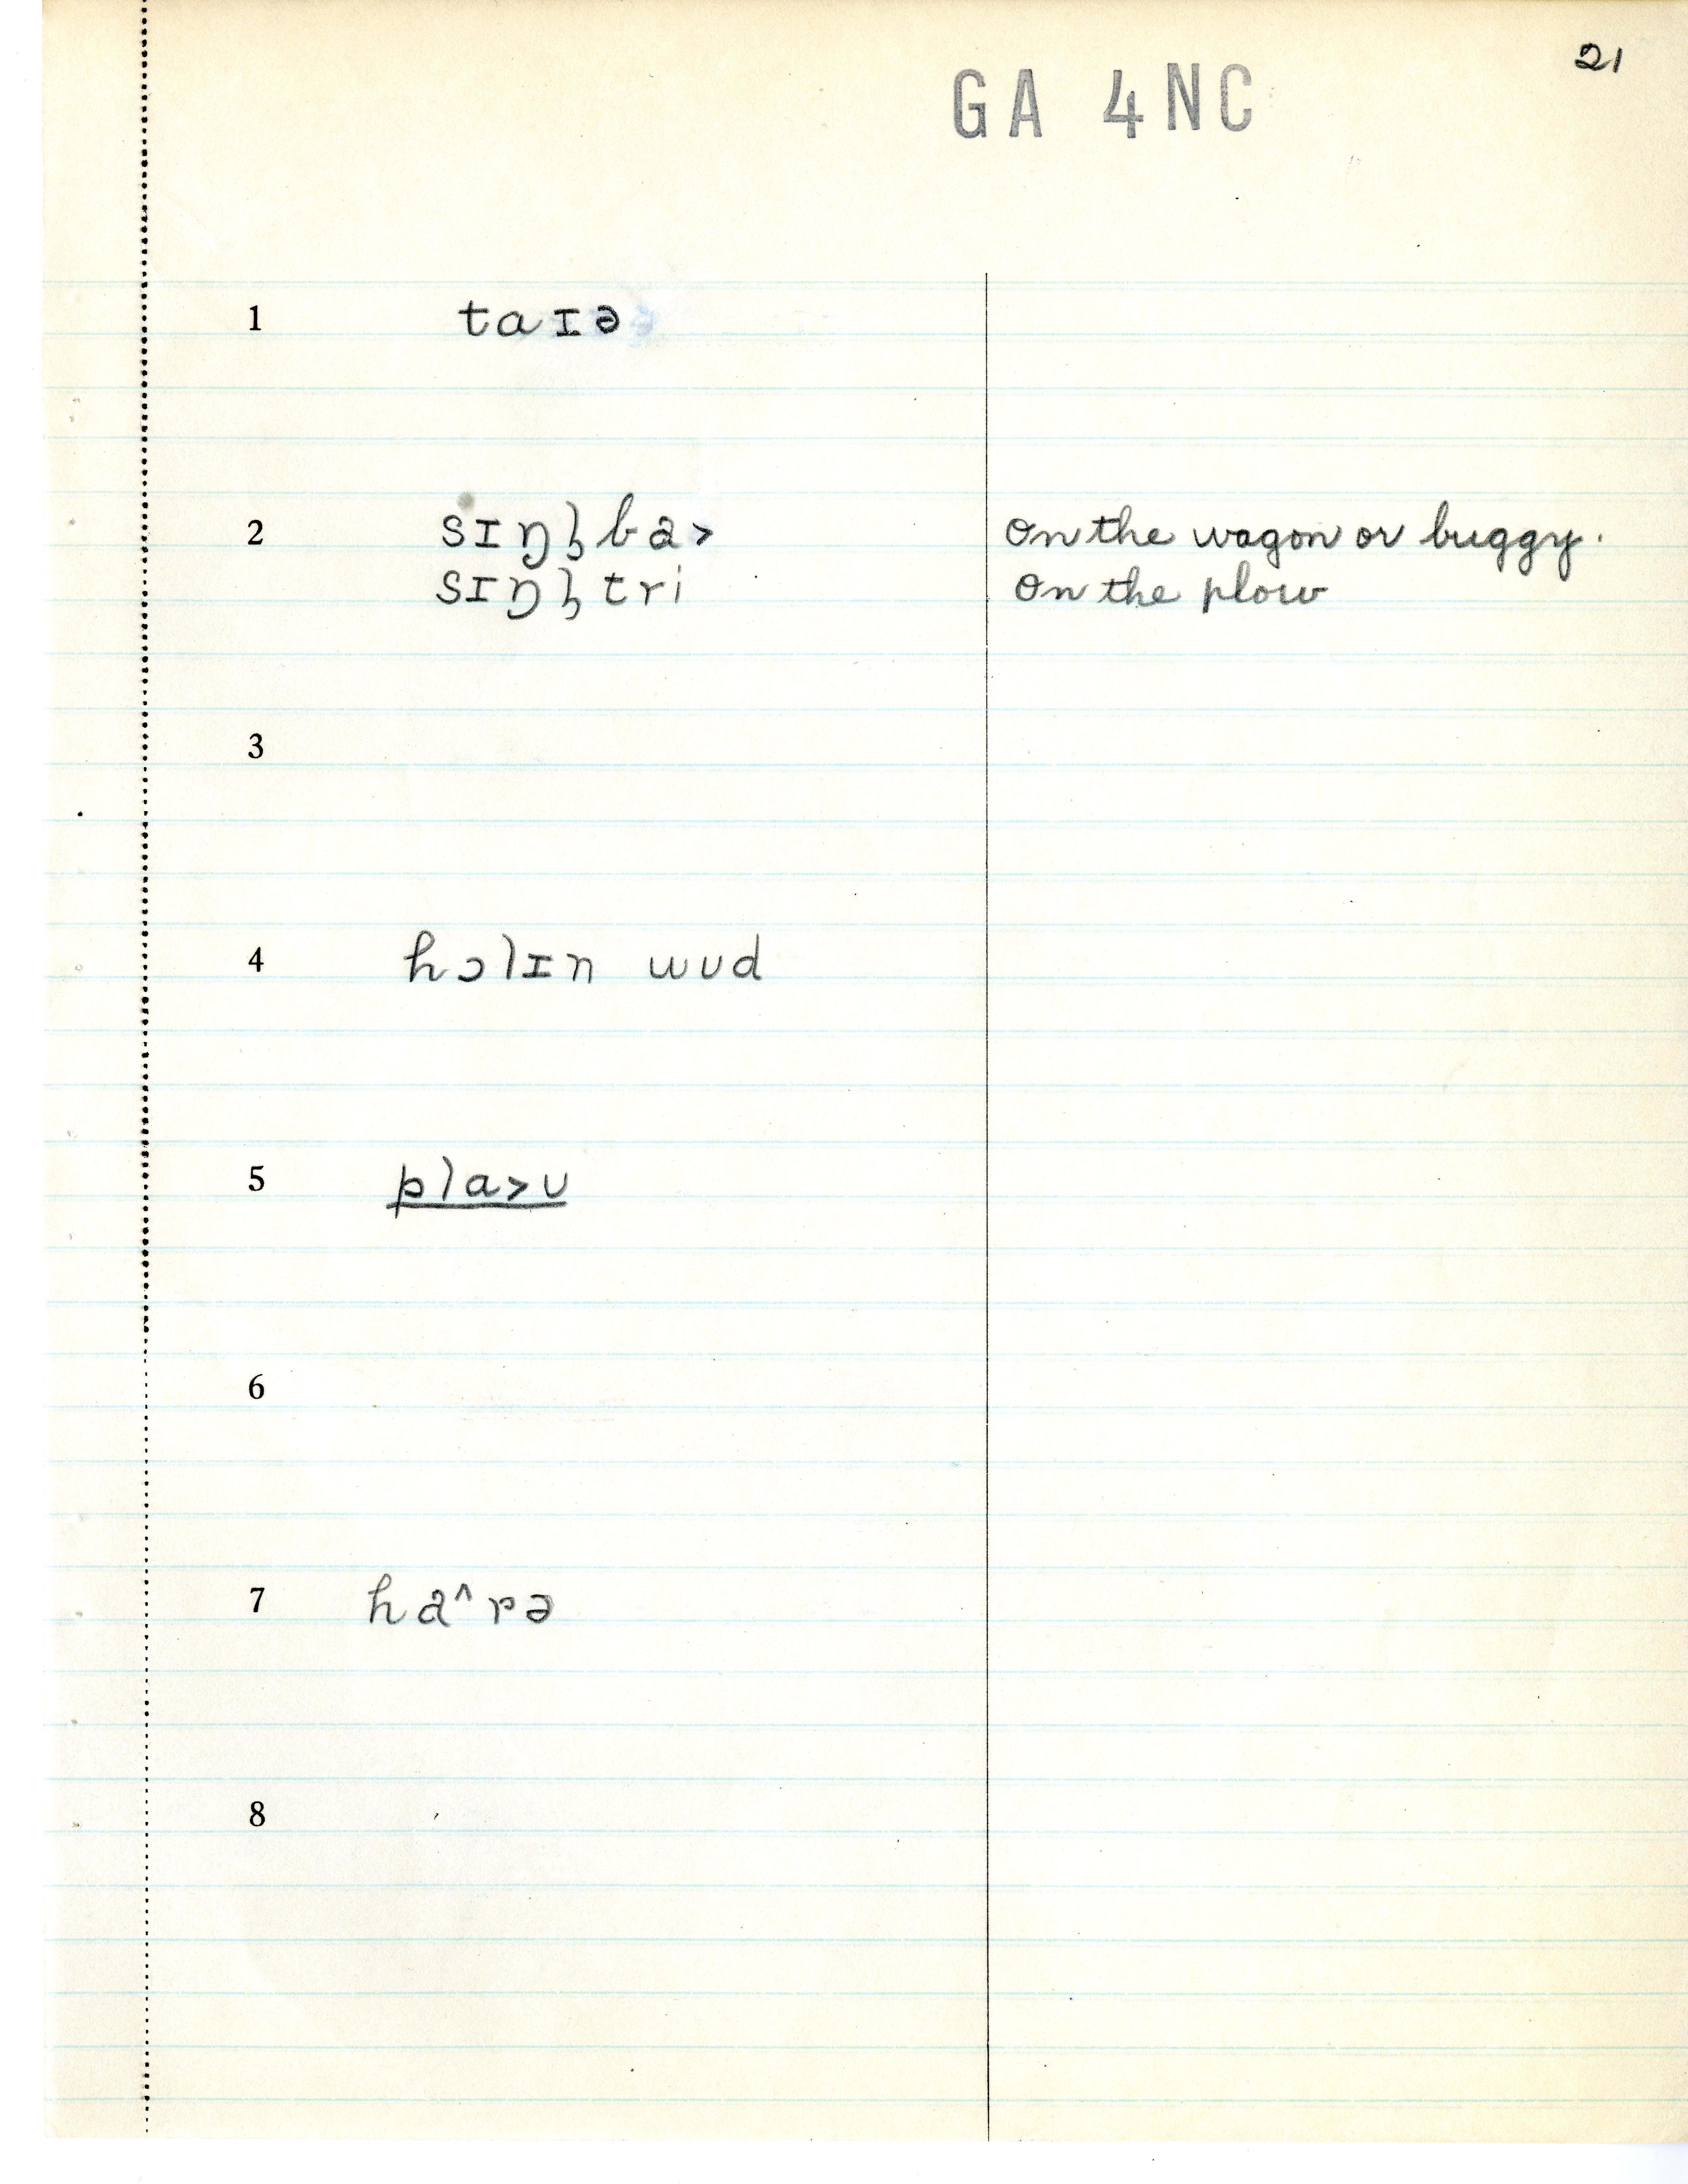 21
GA 4NC
1 taɪə
2 sɪŋl̩ba> on the wagon or buggy.
sɪŋl̩tri on the plow
3
4 hɔlɪn wʊd
5 pla>ʊ
6
7 ha^rə
8